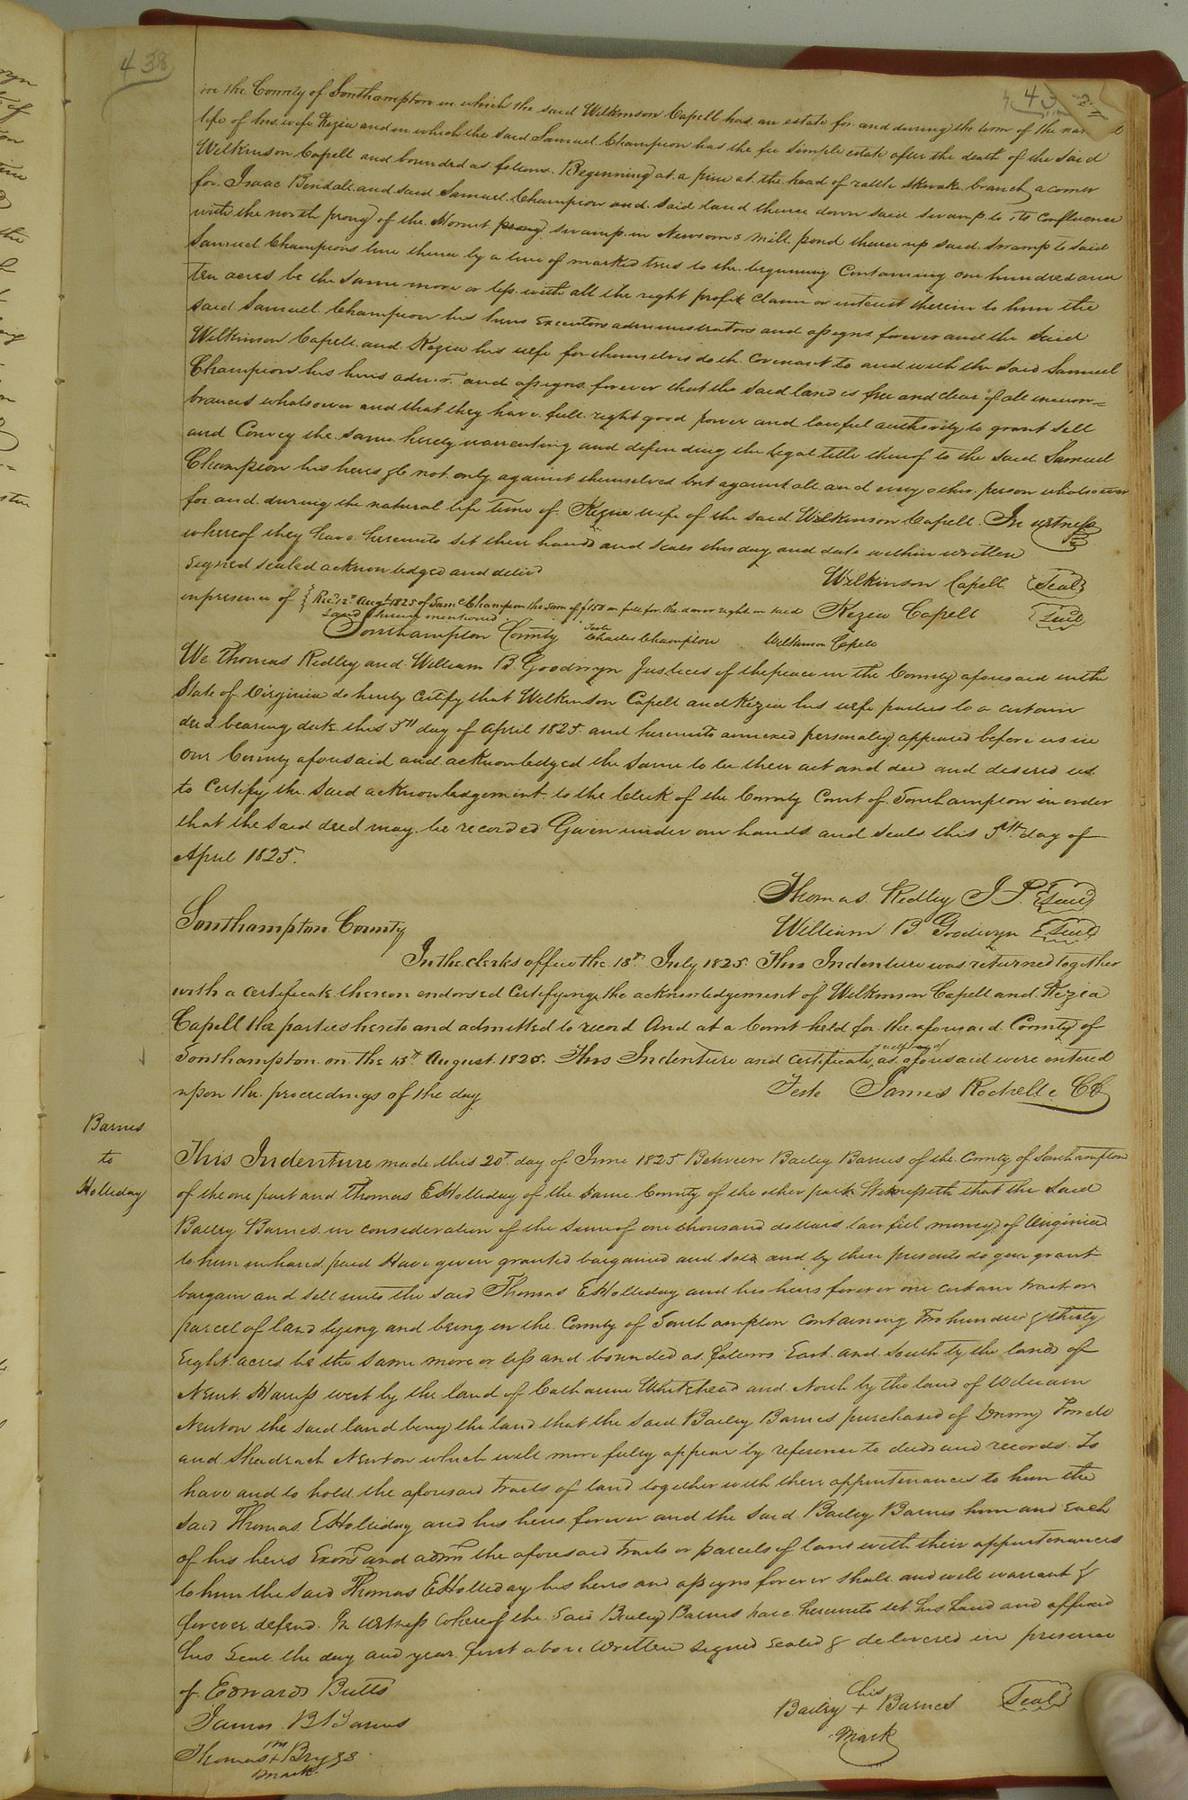 438
in the County of Southampton in which the said Wilkinson Capell has an estate for and during the term of the
life of his wife Kezia and in which the said Samuel Champion has the fee simple estate after the death of the said
Wilkinson Capell and bounded as follows. Beginning at a pine at the head of rattle snake branch a corner
for Isaac Bendall and said Samuel Champion and said land thence down said swamp to its confluence
with the north prong of the Hornet prong swamp in Newsoms mill pond thence up said swamp to said
Samuel Champions line thence by a line of marked trees to the beginning Containing one hundred and
ten acres be the same more or less with all the right profit claim or interest therein to him the
said Samuel Champion his heirs executors administrators and assigns forever and the said
Wilkinson Capell and Kezia his wife for themselves doth covenant to and with the said Samuel
Champion his heirs admrs. and assigns forever that the said land is free and clear of all incum=
brances whatsoever and that they have full right good power and lawful authority to grant sell
and Convey the same hereby warrenting and defending the legal title thereof to the said Samuel
Champion his heirs &c not only against themselves but against all and every other person whatsoever
for and during the natural life time of Kezia wife of the said Wilkinson Capell. In witness
whereof they have hereunto set their hands and seals this day and date within written
Signed sealed acknowledged and delivd
Wilkinson Capell Seal
in presence of Recd. 12th Augt 1825 of Saml Champion the sum of $150 in full for the dower right in said Kezia Capell Seal
Land herein mentioned
Southampton County Teste Charles Champion Wilkinson Capell
We Thomas Ridley and William B Goodwyn Justices of the peace in the County aforesaid in the
State of Virginia do hereby certify that Wilkinson Capell and Kezia his wife parties to a certain
deed bearing date this 5th day of April 1825 and hereunto annexed personally appeared before us in
our County aforesaid and acknowledged the same to be their act and deed and desired us
to Certify the said acknowledgement to the Clerk of the County Court of Southampton in order
that the said deed may be recorded Given under our hands and seals this 5th day of
April 1825.
Thomas Ridley J P. Seal
William B Goodwyn Seal
Southampton County
In the clerks office the 18th July 1825 This Indenture was returned together
with a certificate thereon endorsed Certifying the acknowledgement of Wilkinson Capell and Kezia
Capell the parties hereto and admitted to record And at a Court held for the aforesaid County of
Southampton on the 15th August 1825. This Indenture and certificate as aforesaid were entered
upon the proceedings of the day
Teste James Rochelle CC
Barnes
to
Holliday
This Indenture made this 20th day of June 1825 Between Bailey Barnes of the County of Southampton
of the one part and Thomas E Holliday of the same County of the other part. Witnesseth that the said
Bailey Barnes in consideration of the sum of one thousand dollars lawful money of Virginia
to him in hand paid Have given granted bargained and sold and by these presents do give grant
bargain and sell unto the said Thomas E Holliday and his heirs forever one certain tract or
parcel of land lying and being in the County of Southampton containing two hundred & thirty
eight acres be the same more or less and bounded as follows East and South by the lands of
Newit Harris west by the land of Catharine Whitehead and North by the land of William
Newton the said land being the land that the said Bailey Barnes purchased of Drury
and Shadrach Newton which will more fully appear by reference to deeds and records. To
have and to hold the aforesaid tracts of land together with their appurtenances to him the
said Thomas E Holliday and his heirs forever and the said Bailey Barnes him and each
of his heirs Exors. and admrs the aforesaid tracts or parcels of land with their appurtenances
to him the said Thomas E Holliday his heirs and assigns forever shall and will warrant &
forever defend. In witness whereof the said Bailey Barnes have hereunto set his hand and affixed
his Seal the day and year first above written signed sealed & delivered in presence
of Edward Butts
his
Bailey + Barnes Seal
mark
James B Barnes
Thomas + Briggs
mark